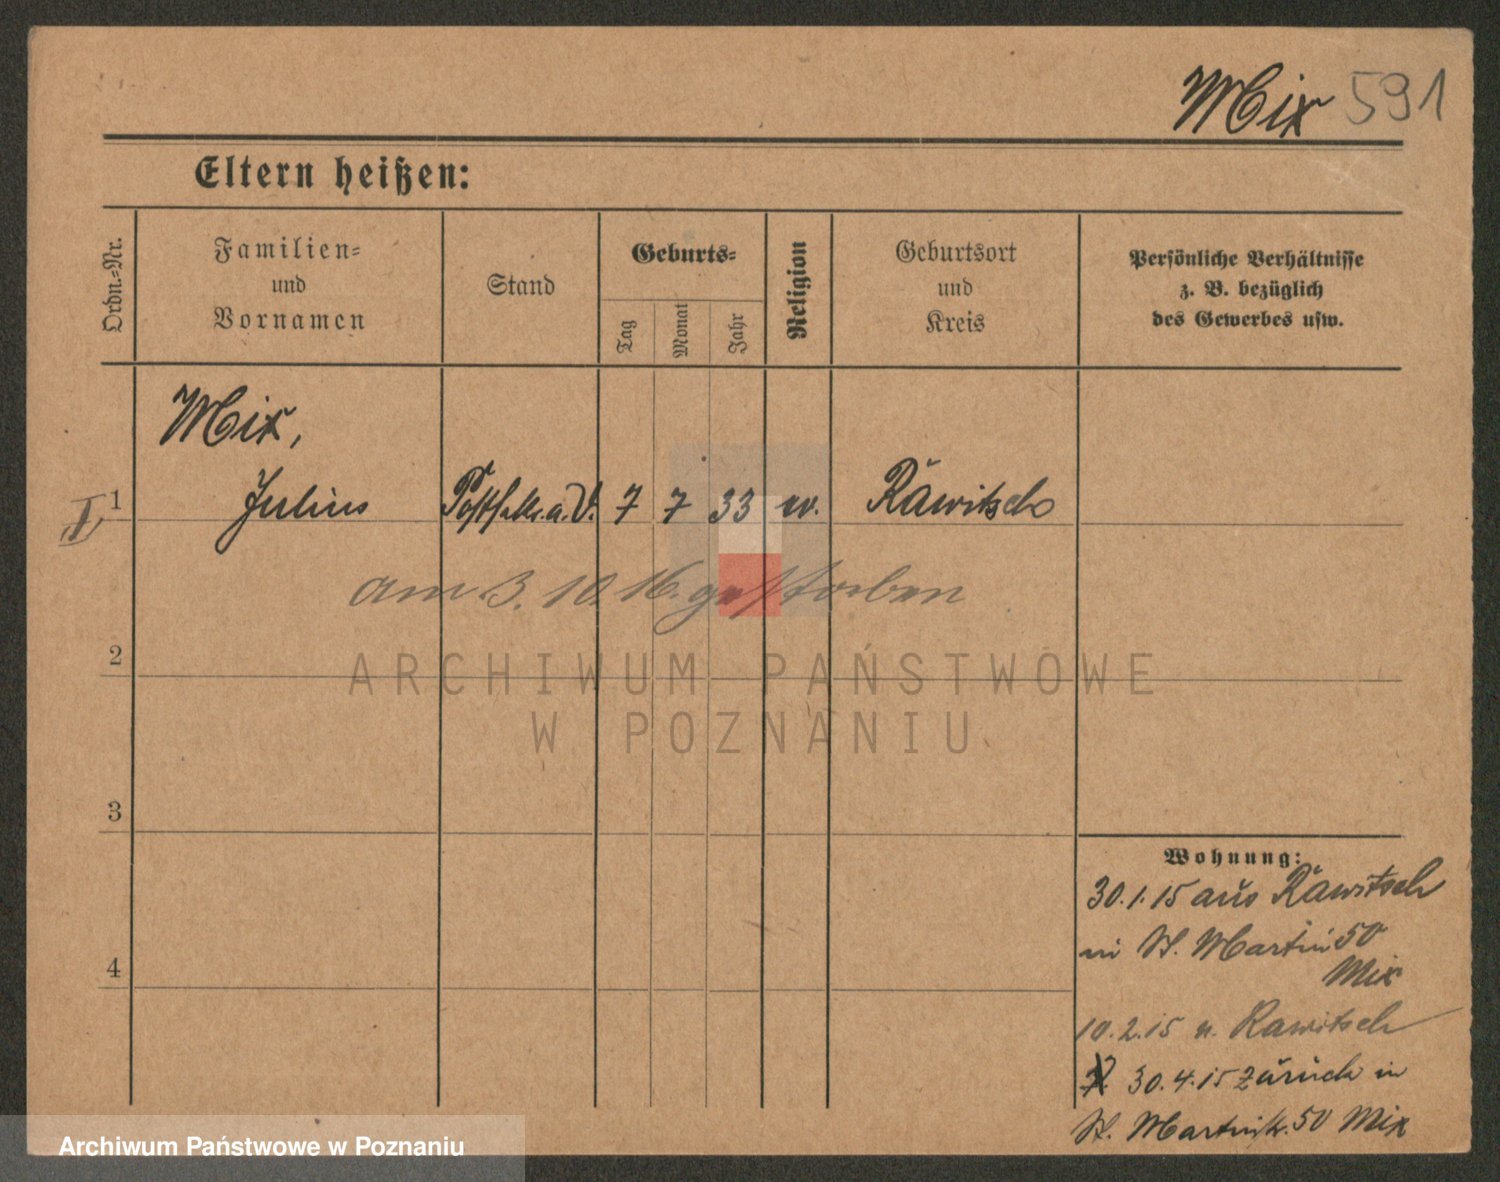 Mix 591
Eltern heißen:
Ordn.-Nr.
Familien-
und
Vornamen
Stand
Geburts-
Tag
Monat
Jahr
Religion
Geburtsort
und
Kreis
Persönliche Verhältnisse
z. B. bezüglich
des Gewerbes usw.
Mix,
I 1 Julius 7 7 33 Rawitsch
am 3. 10. 16. gestorben
2
ARCHIWUM PAŃSTWOWE
W POZNANIU
3
4
Wohnung:
30.1.15 aus Rawitsch
in St. Martin 50
Mix
10.2.15 n. Rawitsch
30.4.15 zurück in
St. Martinstr. 50 Mix
Archiwum Państwowe w Poznaniu